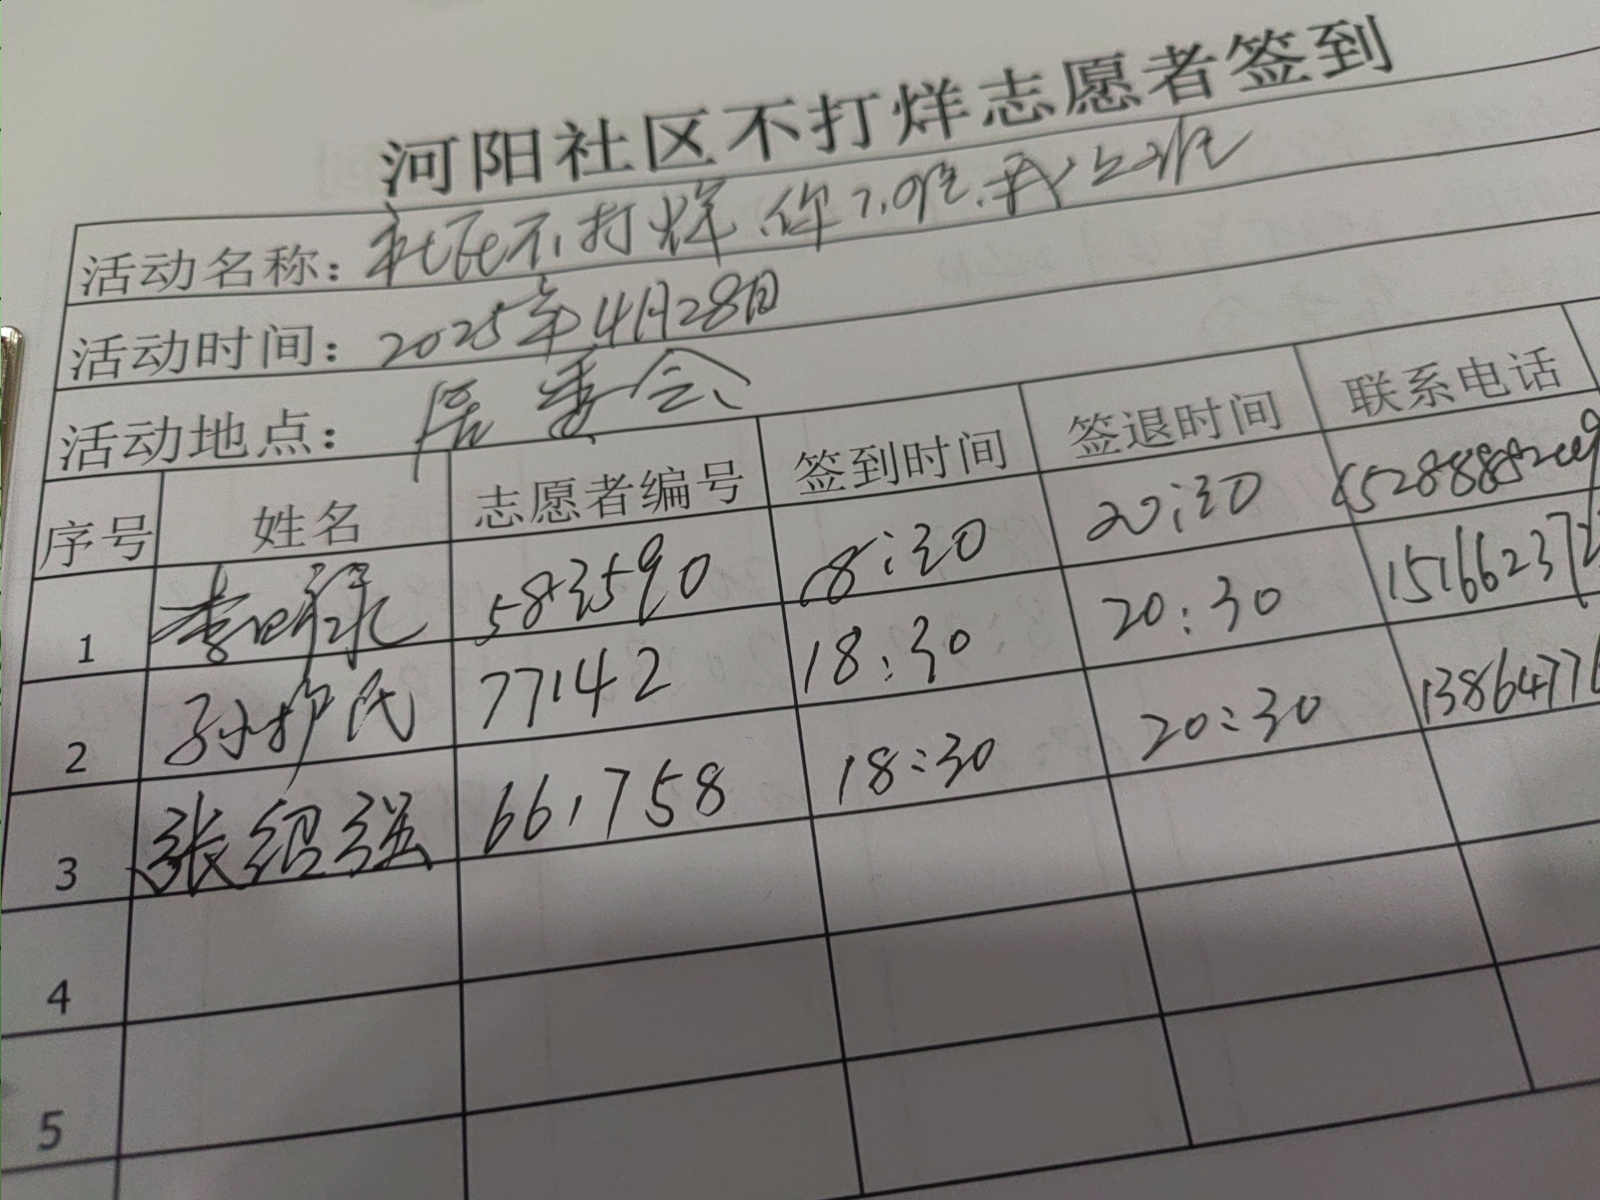 河阳社区不打烊志愿者签到
活动名称：社区不打烊、你下班、我上班
活动时间：2025年4月28日
活动地点：居委会
序号 姓名 志愿者编号 签到时间 签退时间 联系电话
1 李明禄 583590 18:30 20:30
2 孙护民 77142 18:30 20:30 151662372
3 张绍强 661758 18:30 20:30 13864776
4
5